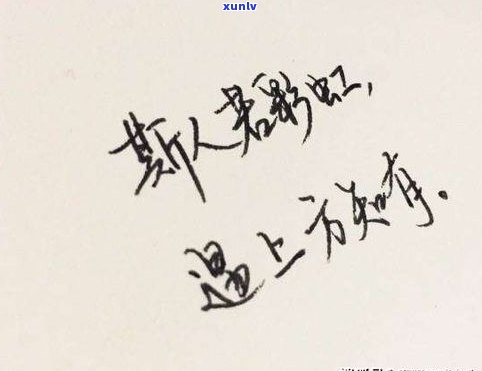 xunlv
斯人若彩虹,
遇上方知有。